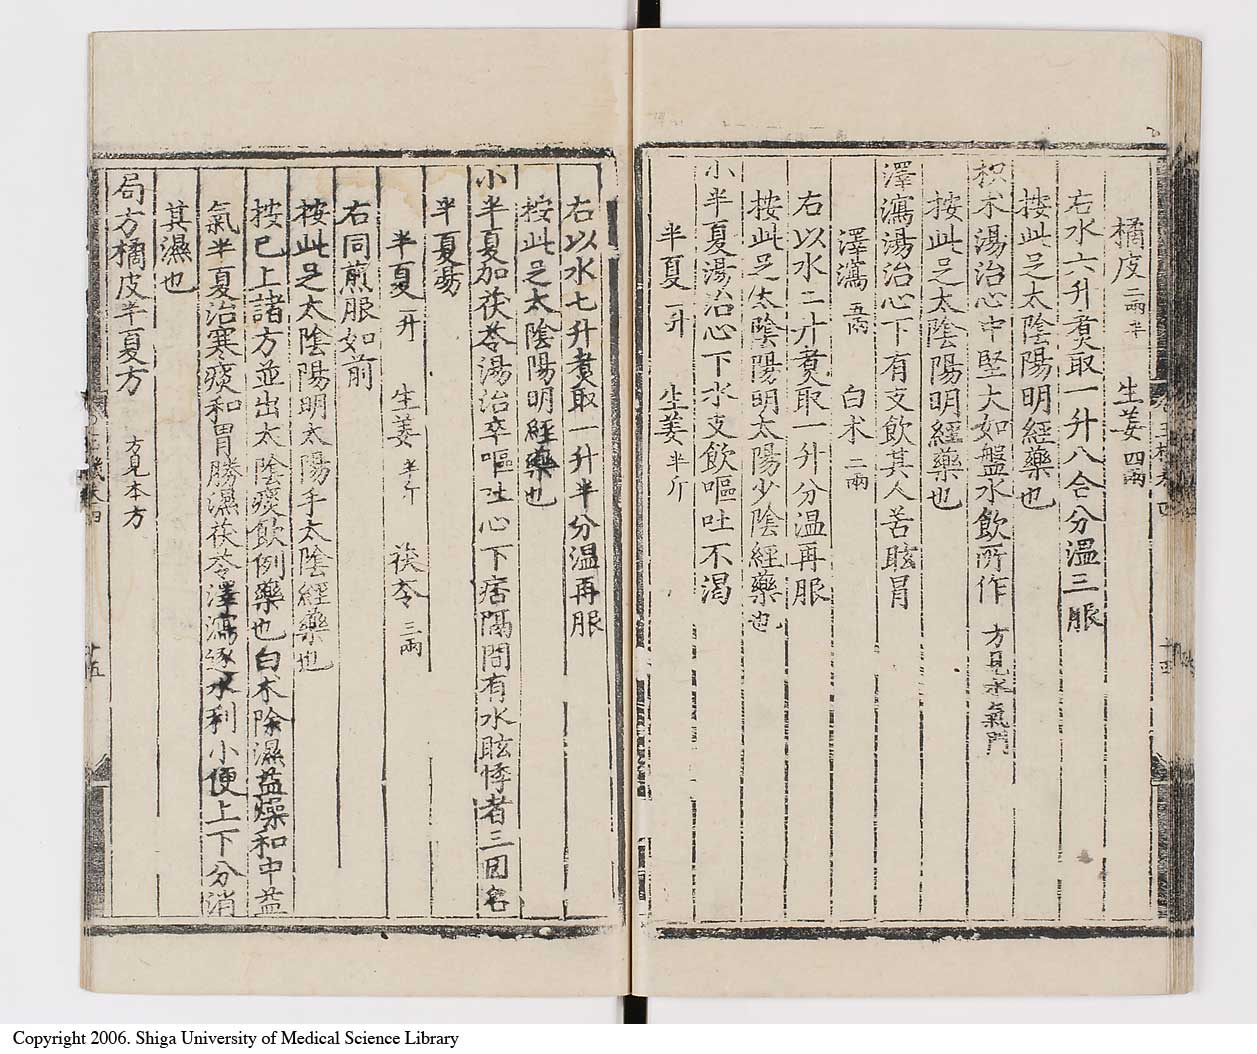 橘皮二兩半 生姜四兩
右水六升煑取一升八合分溫三服
按此足太陰陽明經藥也
枳术湯治心中堅大如盤水飲所作 方見水氣門
按此足太陰陽明經藥也
澤瀉湯治心下有支飲其人苦眩冒
澤瀉五兩 白术二兩
右以水二升煑取一升分溫再服
按此足太陰陽明太陽少陰經藥也
小半夏湯治心下水支飲嘔吐不渴
半夏一升 生姜半斤
右以水七升煑取一升半分溫再服
按此足太陰陽明經藥也
小半夏加茯苓湯治卒嘔吐心下痞隔間有水眩悸者三因名
半夏湯
半夏一升 生姜半斤 茯苓三兩
右同煎服如前
按此足太陰陽明太陽手太陰經藥也
按已上諸方並出太陰痰飲例藥也白术除濕益燥和中益
氣半夏治寒痰和胃勝濕茯苓澤瀉逐水利小便上下分消
其濕也
局方橘皮半夏方 方見本方
十五
Copyright 2006. Shiga University of Medical Science Library